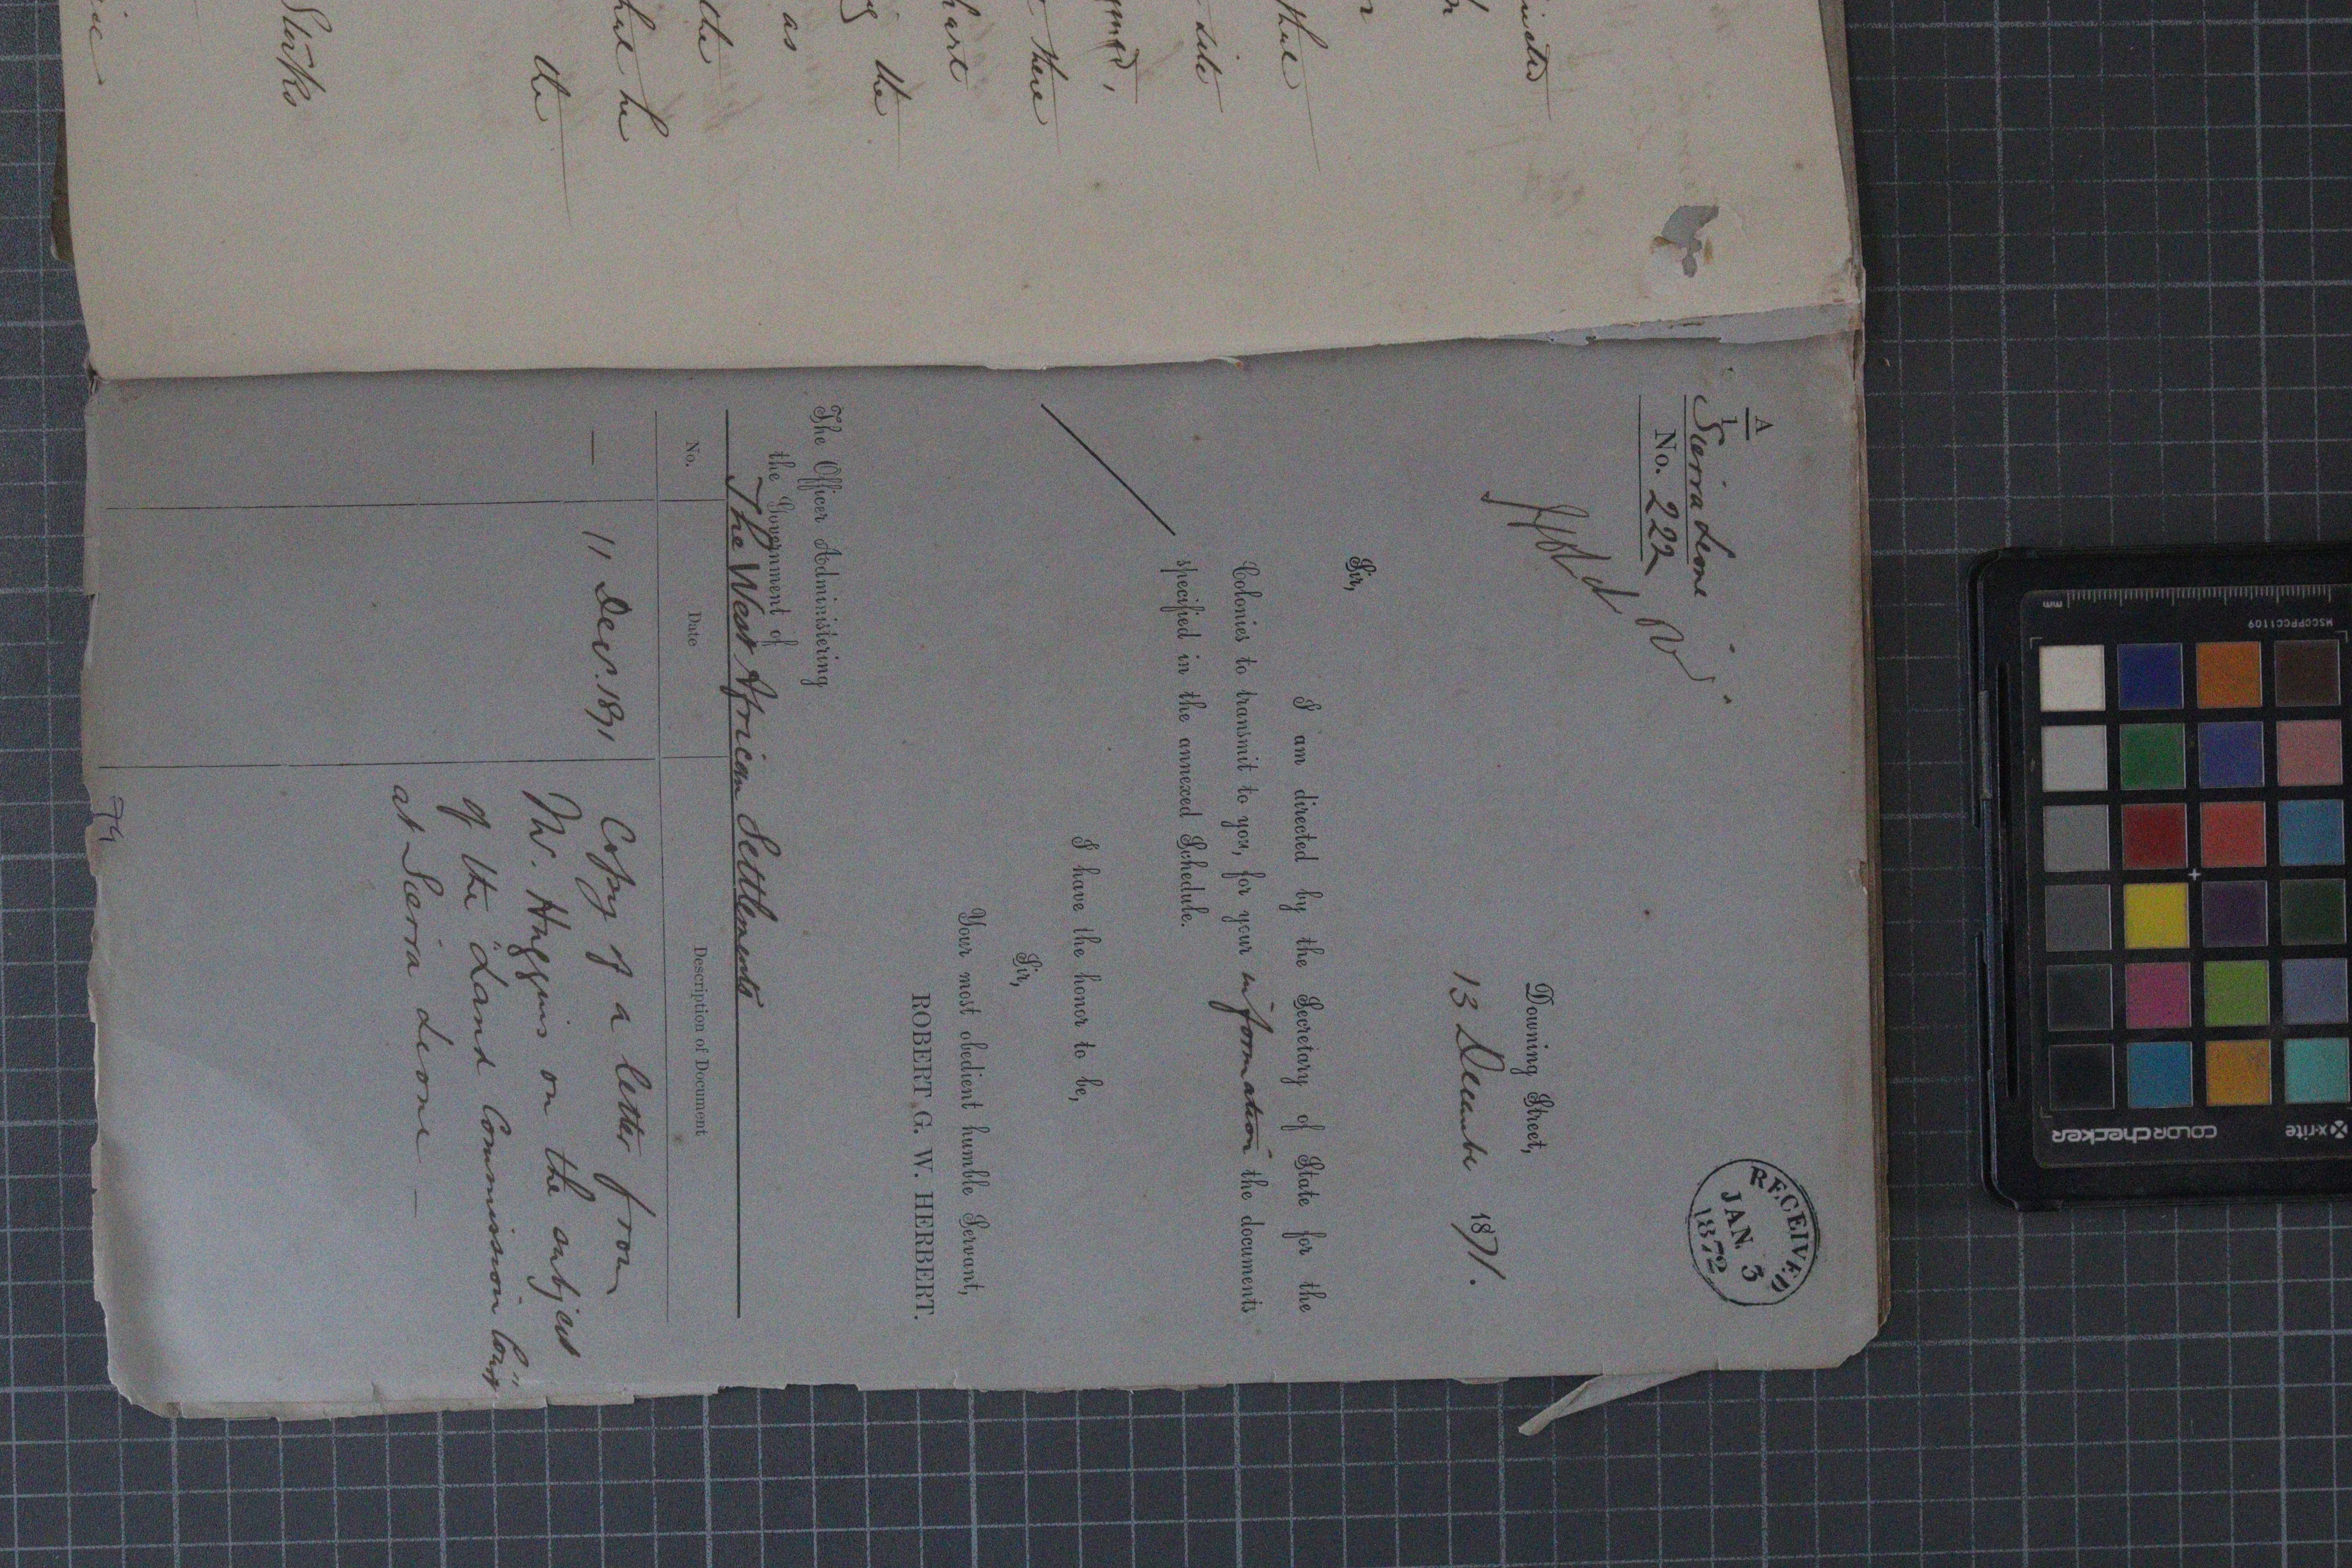 A
1
Sierra Leone
No. 222
RECEIVED
JAN. 3
1872
Downing Street,
13 December 1871.
Sir,
I am directed by the Secretary of State for the
Colonies to transmit to you, for your information the documents
specified in the annexed Schedule.
I have the honor to be,
Sir,
Your most obedient humble Servant,
ROBERT G. W. HERBERT.
The Officer Administering
the Government of
The West African Settlements
No. Date Description of Document
— 11 Decr. 1871 Copy of a letter from
Mr. Huggins on the subject
of the "Land Commission Court"
at Sierra Leone —
79
that
side
there
the
as
the
that he
the
Sirks
x-rite
colorchecker
MSCCPPCC1109
mm